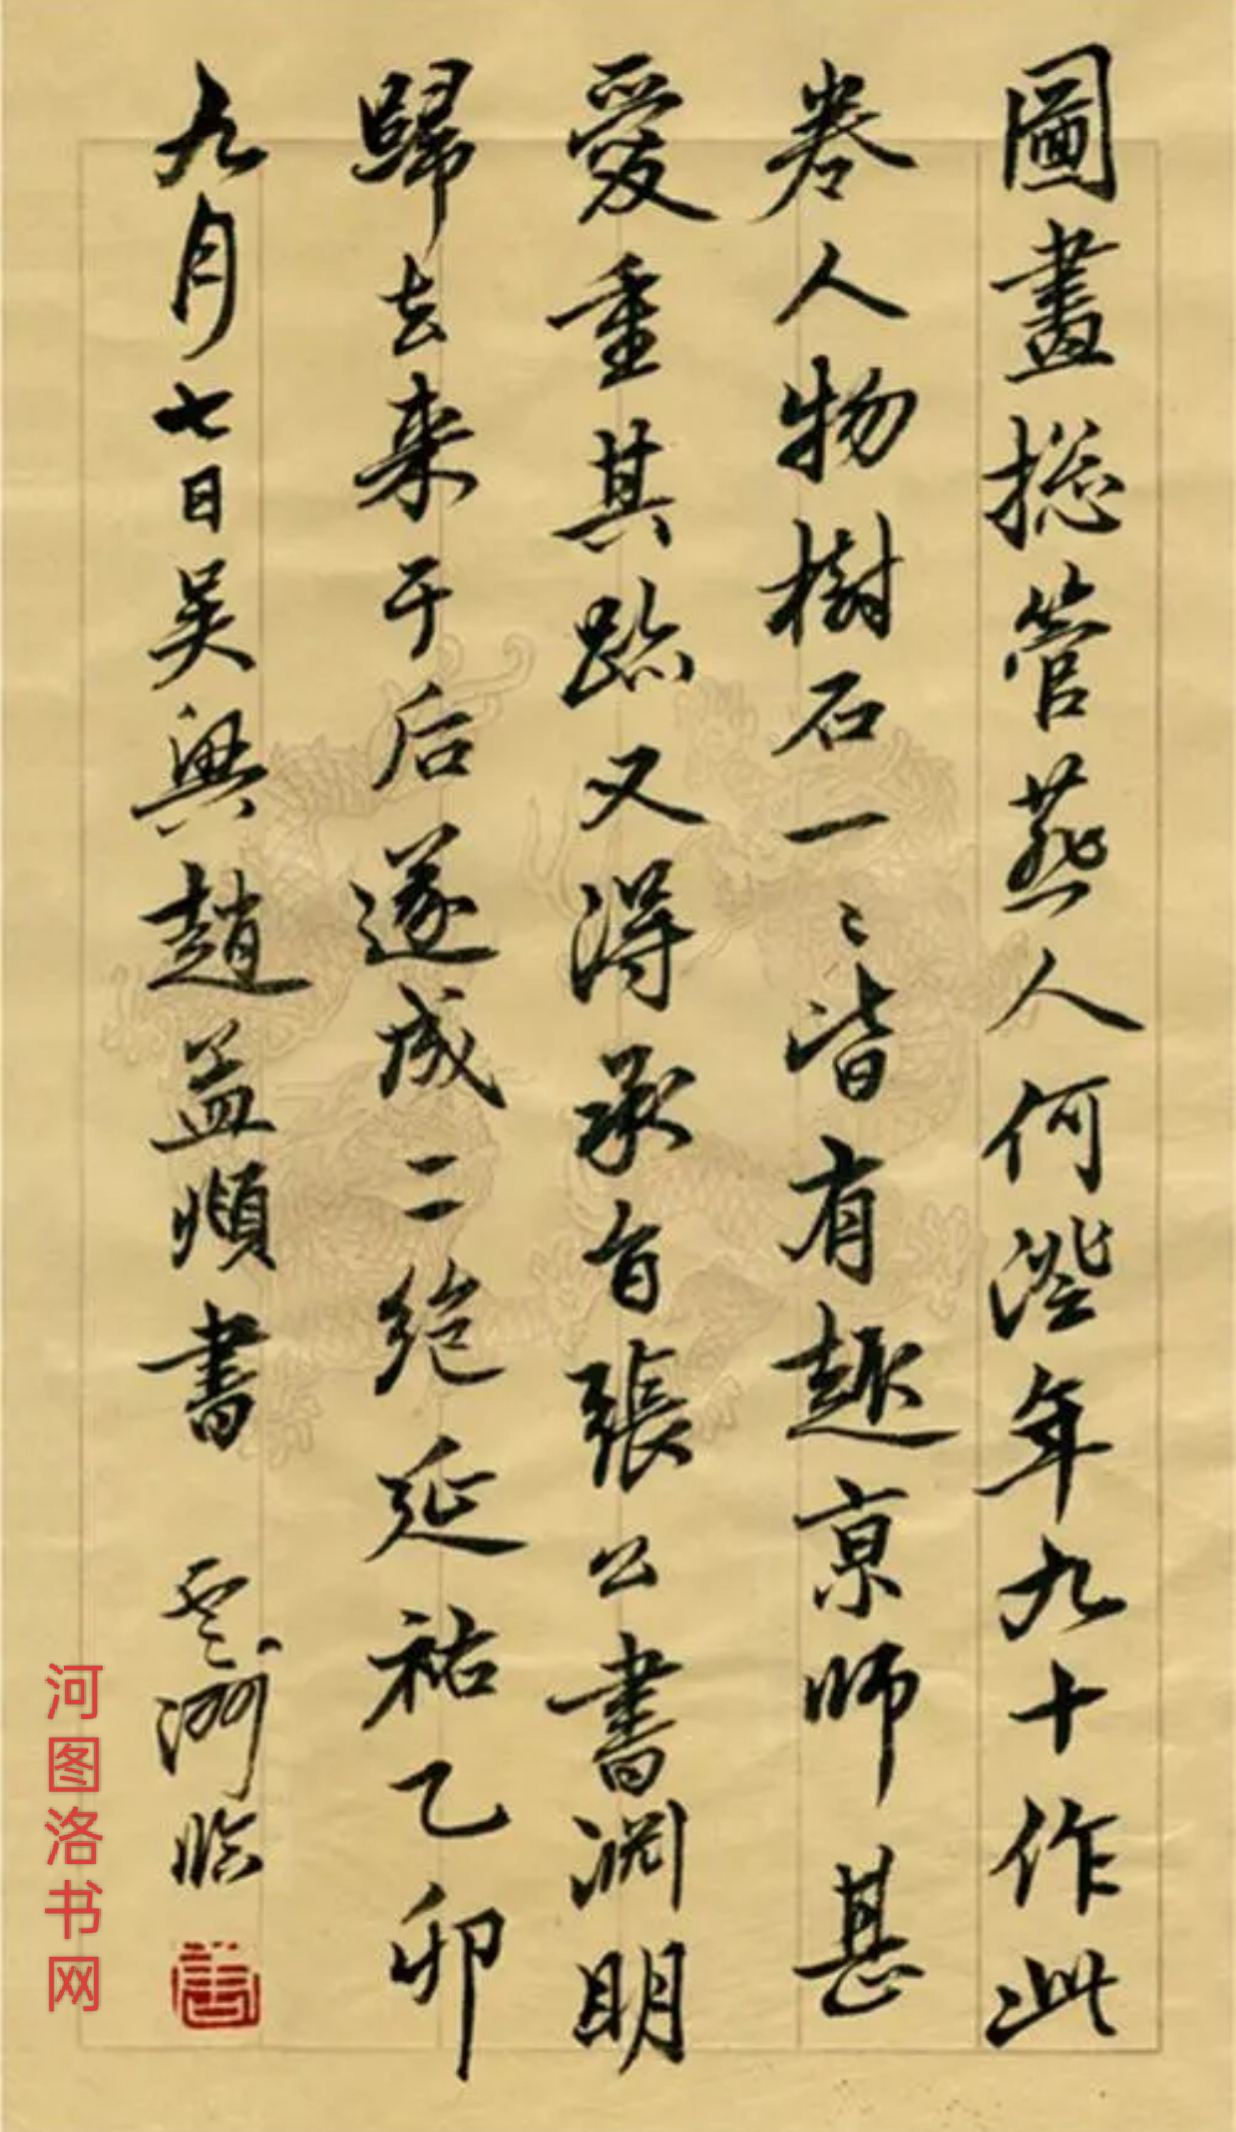 圖畫捴管燕人何澄年九十作此
卷人物樹石一〻皆有趣京師甚
愛重其跡又得承旨張公書淵明
歸去来于后遂成二絶延祐乙卯
九月七日吴興趙孟頫書
雲洲臨
河图洛书网